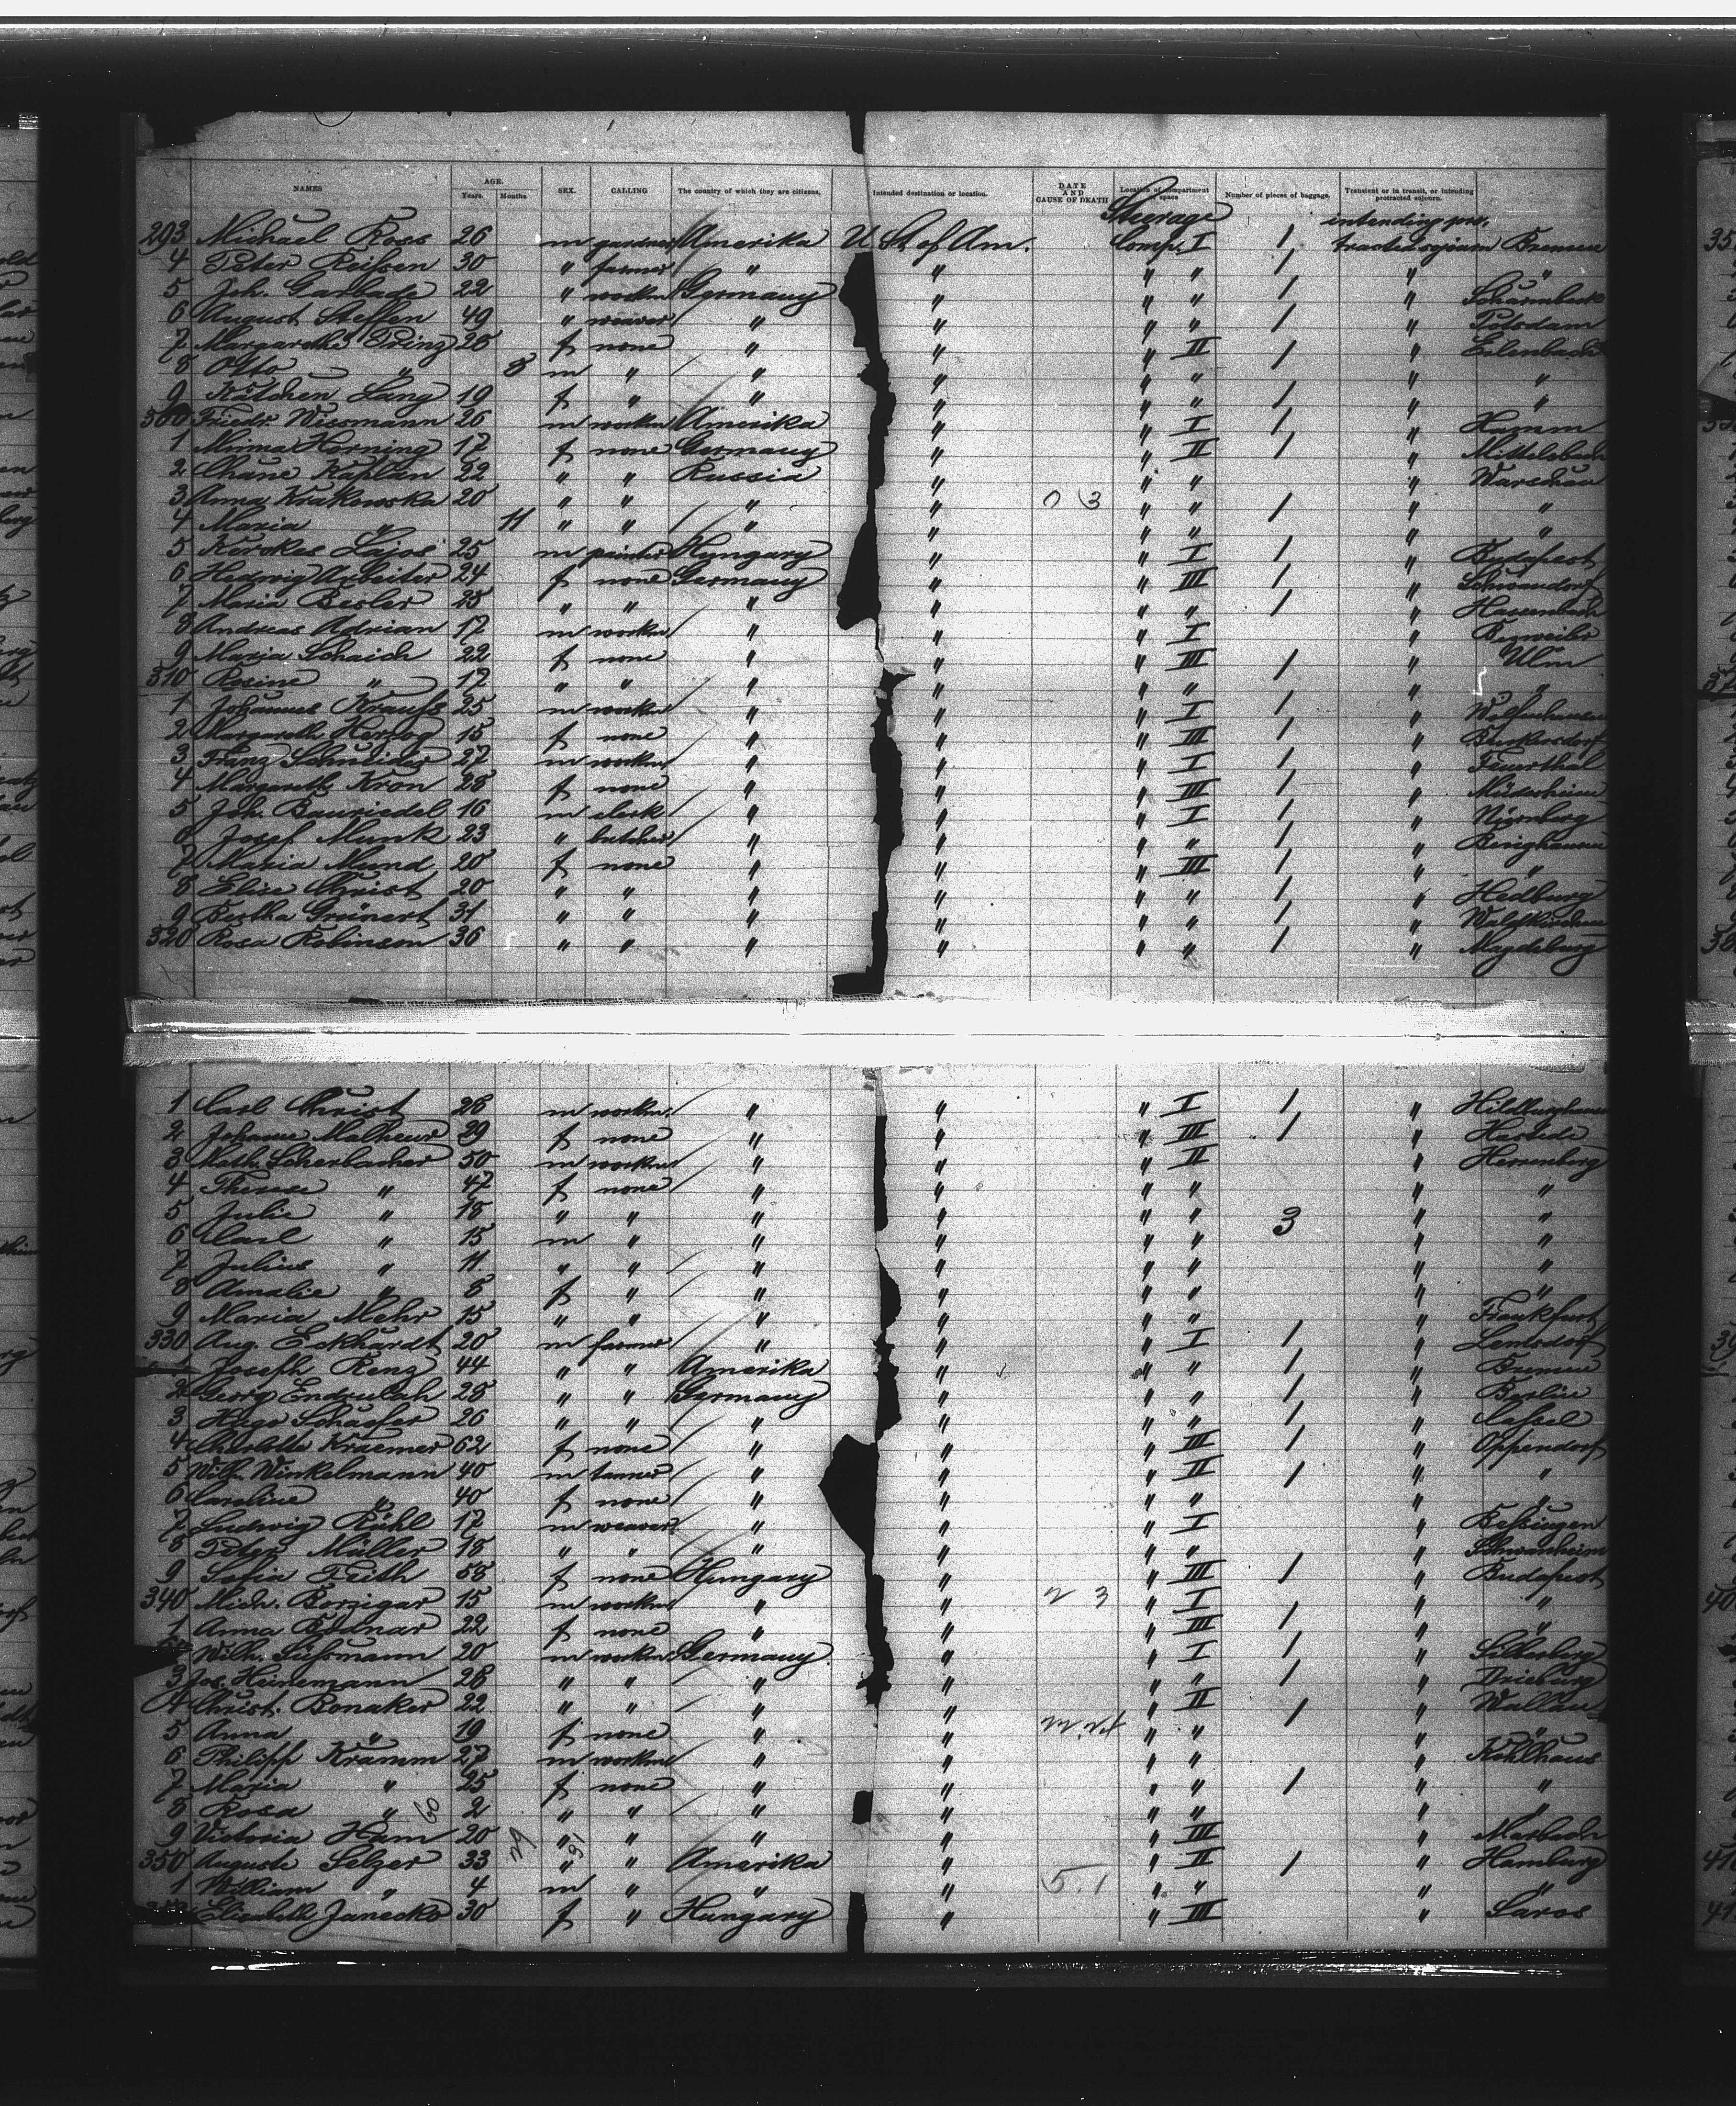 NAMES AGE. Years. Months SEX. CALLING The country of which they are citizens. Intended destination or location. DATE AND CAUSE OF DEATH Location of compartment or space Number of pieces of baggage. Transient or in transit, or intending protracted sojourn.
Steerage intending pro.
293 Michael Ross 26 m gardner Amerika U St of Am. Comp. I 1 tracted sojourn Bremen
4 Peter Reifsen 30 " farmer " " " " 1 " "
5 Joh. Garbade 22 " workm Germany " " " 1 "
6 August Steffen 49 " weaver " " " " 1 " Potsdam
7 Margarethe Prinz 26 f none " " " II 1 "
8 Otto " 8 m " " " " " "  "
9 Kätchen Lang 19 f " " " " " 1 " "
300 Friedr. Wissmann 26 m workm Amerika " " I 1 " Hamm
1 Minna Horning 17 f none Germany " " II 1 "
2 Chane Kaplan 22 " " Russia " " " " Warschau
3 Anna Krakowska 20 " " " " 3 " " 1 " "
4 Maria " 11 " " " " " " " "
5 Kerekes Lajos 25 m painter Hungary " " I 1 " Budapest
6 Hedwig Arbeiter 24 f none Germany " " III 1 " Schwandorf
7 Maria Besler 25 " " " " " " 1 " Hassenbach
8 Andreas Adrian 17 m workm " " " I "
9 Maria Schaich 22 f none " " " III 1 " Ulm
310 Rosine " 17 " " " " " " " "
1 Johannes Kraufs 25 m workm " " " I 1 "
2 Margarethe Herzog 15 f none " " " III 1 "
3 Franz Schneider 27 m workm " " " I 1 " Feuerthal
4 Margareth Kron 28 f none " " " III 1 "
5 Joh. Bauriedel 16 m clerk " " " I 1 " Nürnberg
6 Josef Munk 23 " butcher " " " " 1 "
7 Maria Mund 20 f none " " " III 1 " "
8 Elise Christ 20 " " " " " " 1 " Hedburg
9 Bertha Grünert 31 " " " " " " 1 "
320 Rosa Robinson 36 " " " " " " 1 " Magdeburg
1 Carl Christ 28 m workm " " " I 1 " Hildburghausen
2 Johanne Matheus 29 f none " " " III 1 "
3 Math. Scherbacher 50 m workm " " " II " Herrenberg
4 Therese " 47 f none " " " " " "
5 Julie " 18 " " " " " " 3 " "
6 Carl " 15 m " " " " " " "
7 Julius " 11 " " " " " " " "
8 Amalie " 8 f " " " " " " "
9 Maria Mehr 15 " " " " " " " Frankfurt
330 Aug. Eckhardt 20 m farmer " " " I 1 "
Joseph Renz 44 " " Amerika " " " 1 " Bremen
2 Georg Endrulath 28 " " Germany " " " 1 " Berlin
3 Hugo Schaefer 26 " " " " " " 1 " Cafsel
4 Charlotte Kraemer 62 f none " " " III 1 " Oppendorf
5 Wilh. Winkelmann 40 m tanner " " " II 1 " "
6 Caroline " 40 f none " " " " " "
7 Ludwig Rühl 17 m weaver " " " I " Befsingen
8 Peter Müller 18 " " " " " " " Schwanheim
9 Sofia Feith 58 f none Hungary " " III 1 " Budapest
340 Mich. Borzigar 15 m workm " " 2 3 " I " "
1 Anna Bodnar 22 f none " " " III 1 " "
Wilh. Süfsmann 20 m workm Germany " " I 1 " Silberberg
3 Jos. Heinemann 28 " " " " " " 1 " Drieburg
4 Christ. Bonaker 22 " " " " " II 1 " Wallau
5 Anna " 19 f none " " " " " "
6 Philipp Krämm 27 m workm " " " " " Kohlhaus
7 Maria " 25 f none " " " " 1 " "
8 Rosa " 60 2 " " " " " " " "
9 Victoria Ham 20 29 " " " " " III " Marbach
350 Auguste Selzer 33 " " Amerika " " II 1 " Hamburg
1 William " 4 m " " " 5.1 " " " "
Elisabeth Janecko 30 f " Hungary " " III " Saros